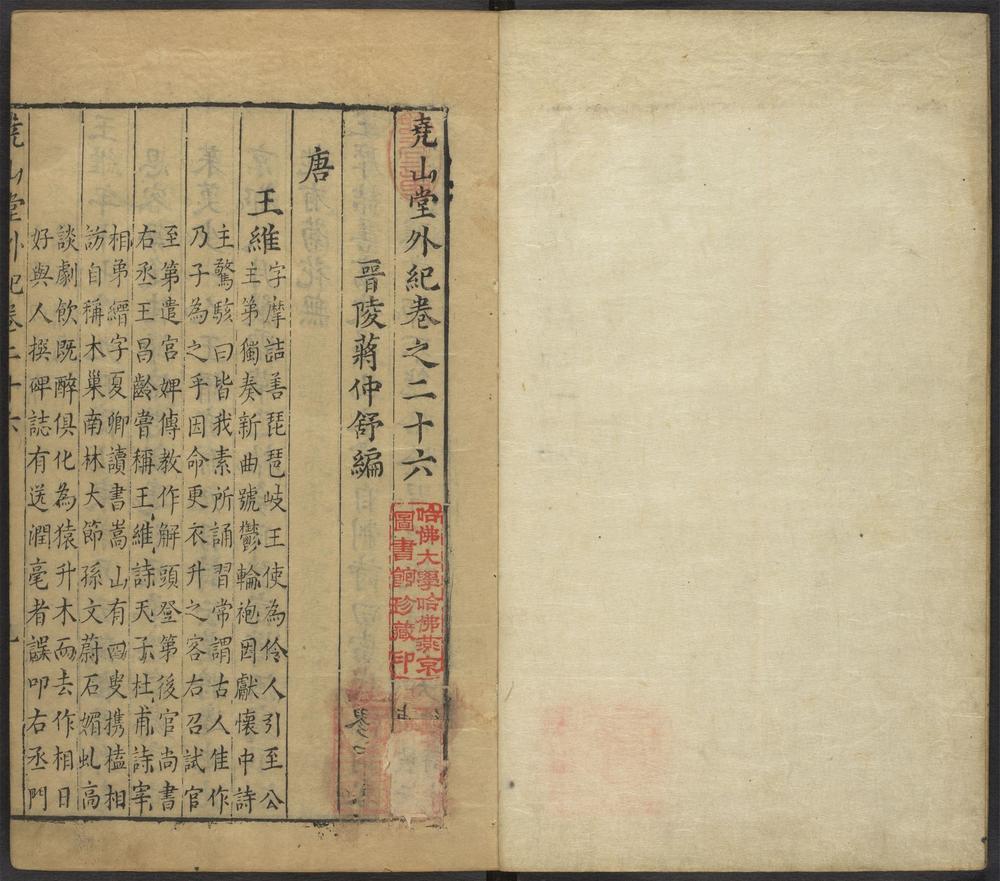 堯山堂外紀卷之二十六
晉陵蔣仲舒編
唐
王維
字摩詰善琵琶岐王使為伶人引至公
主第獨奏新曲號鬱輪袍因獻懷中詩
主驚駭曰皆我素所誦習常謂古人佳作
乃子為之乎因命更衣升之客右召試官
至第遣宮婢傳教作解頭登第後官尚書
右丞王昌齡嘗稱王維詩天子杜甫詩宰
相弟縉字夏卿讀書嵩山有四叟携榼相
訪自稱木巢南林大節孫文蔚石媚虬高
談劇飲既醉俱化為猿升木而去作相日
好與人撰碑誌有送潤毫者誤叩右丞門
堯山堂外紀卷二十六
哈佛大學哈佛燕京
圖書館珍藏印